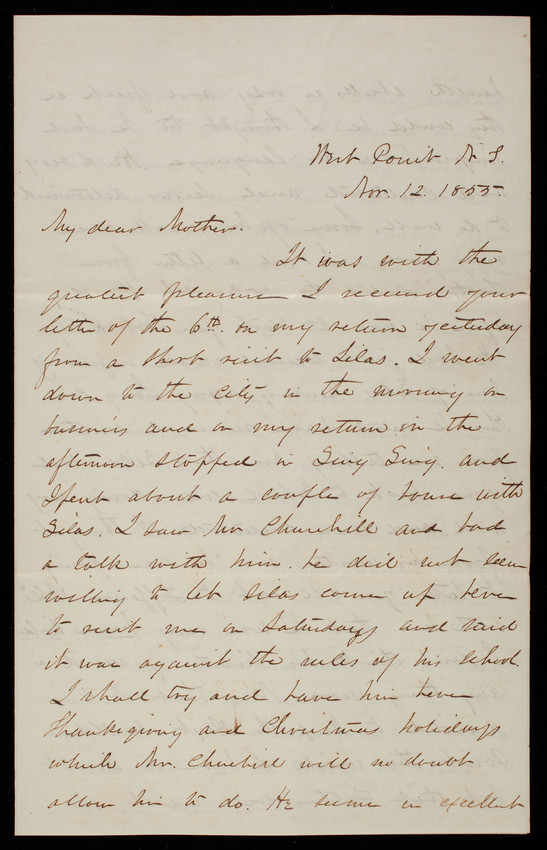 West Point N. Y.
Nov. 12. 1855.
My dear Mother.
It was with the
greatest pleasure I received your
letter of the 6th. on my return yesterday
from a short visit to Silas. I went
down to the city in the morning on
business and on my return in the
afternoon stopped in Sing Sing. and
spent about a couple of hours with
Silas. I saw Mr Churchill and had
a talk with him. he did not seem
willing to let Silas come up here
to visit me on Saturdays and said
it was against the rules of his school
I shall try and have him here
Thanksgiving and Christmas holidays
which Mr. Churchill will no doubt
allow him to do. He seems in excellent